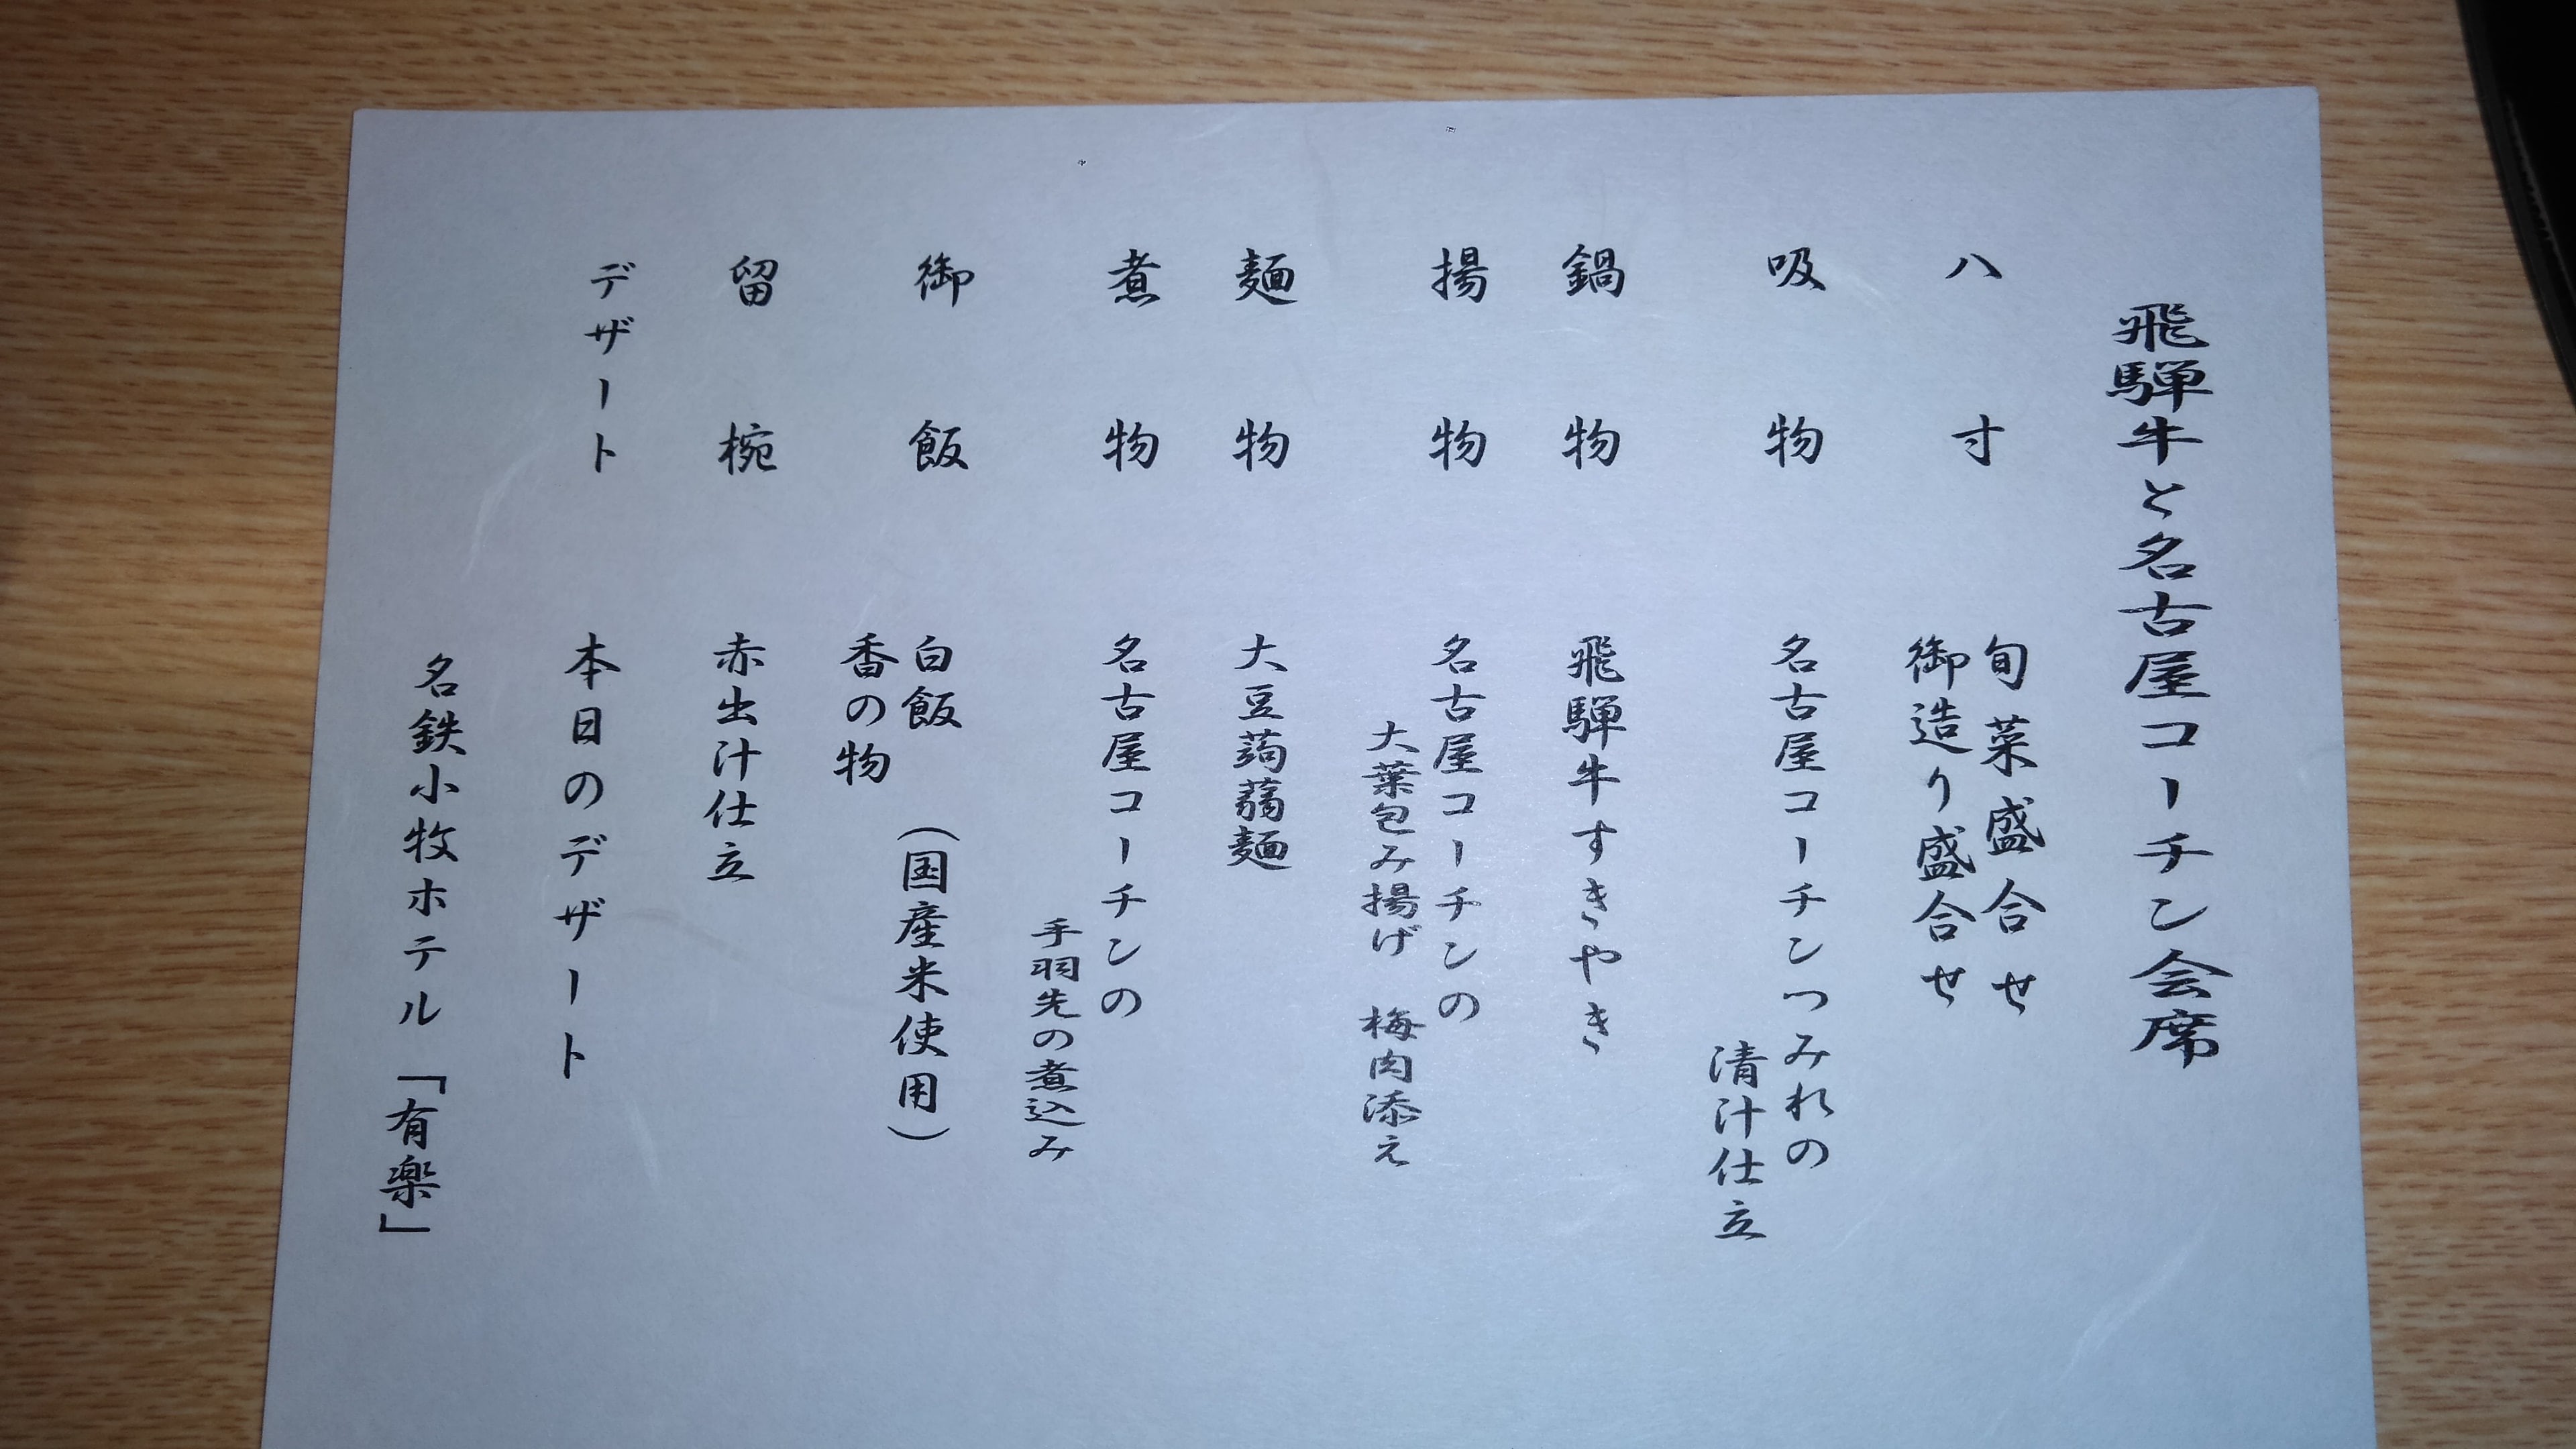 飛騨牛と名古屋コーチン会席
八寸　旬菜盛合せ
御造り盛合せ
吸物　名古屋コーチンつみれの
清汁仕立
鍋物　飛騨牛すきやき
揚物　名古屋コーチンの
大葉包み揚げ　梅肉添え
麺物　大豆蒟蒻麺
煮物　名古屋コーチンの
手羽先の煮込み
御飯　白飯　（国産米使用）
香の物
留椀　赤出汁仕立
デザート　本日のデザート
名鉄小牧ホテル「有楽」